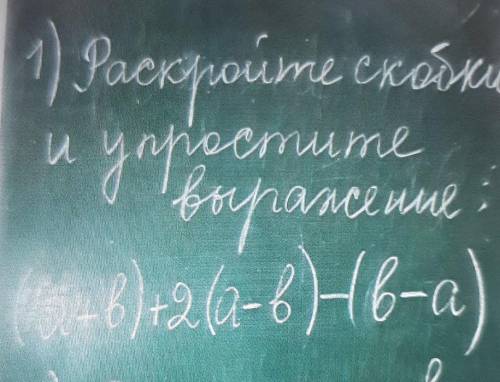 1) Раскройте скобки
и упростите
выражение:
(a+в)+2(a-в)-(в-a)